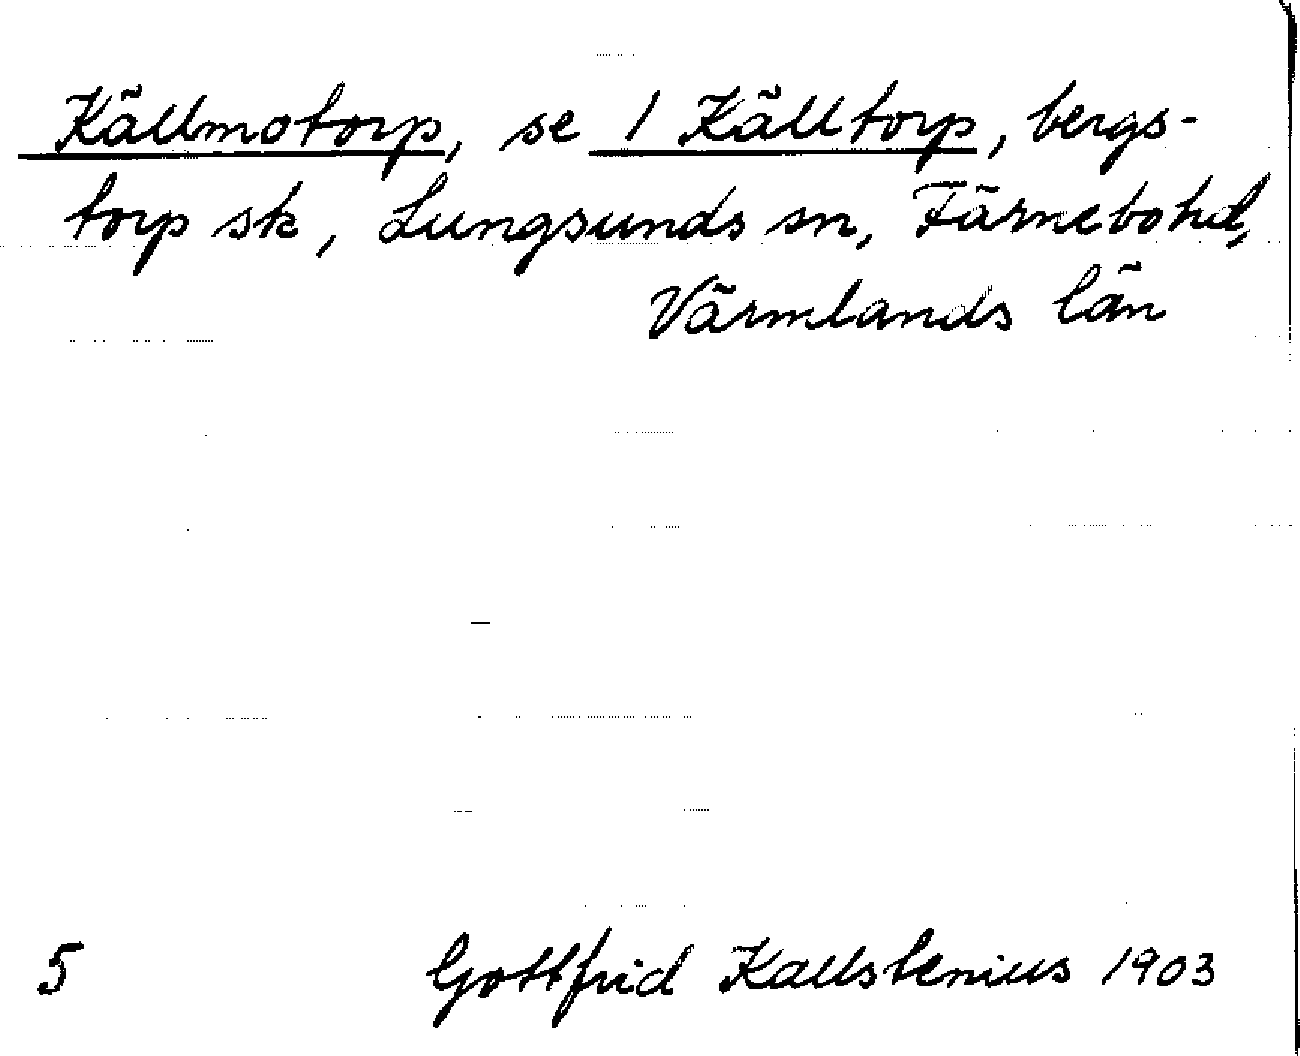 Källmotorp, se 1 Källtorp, bergs-
torp sk, Lungsunds sn, Färnebo hd,
Värmlands län
5 Gottfrid Kallstenius 1903